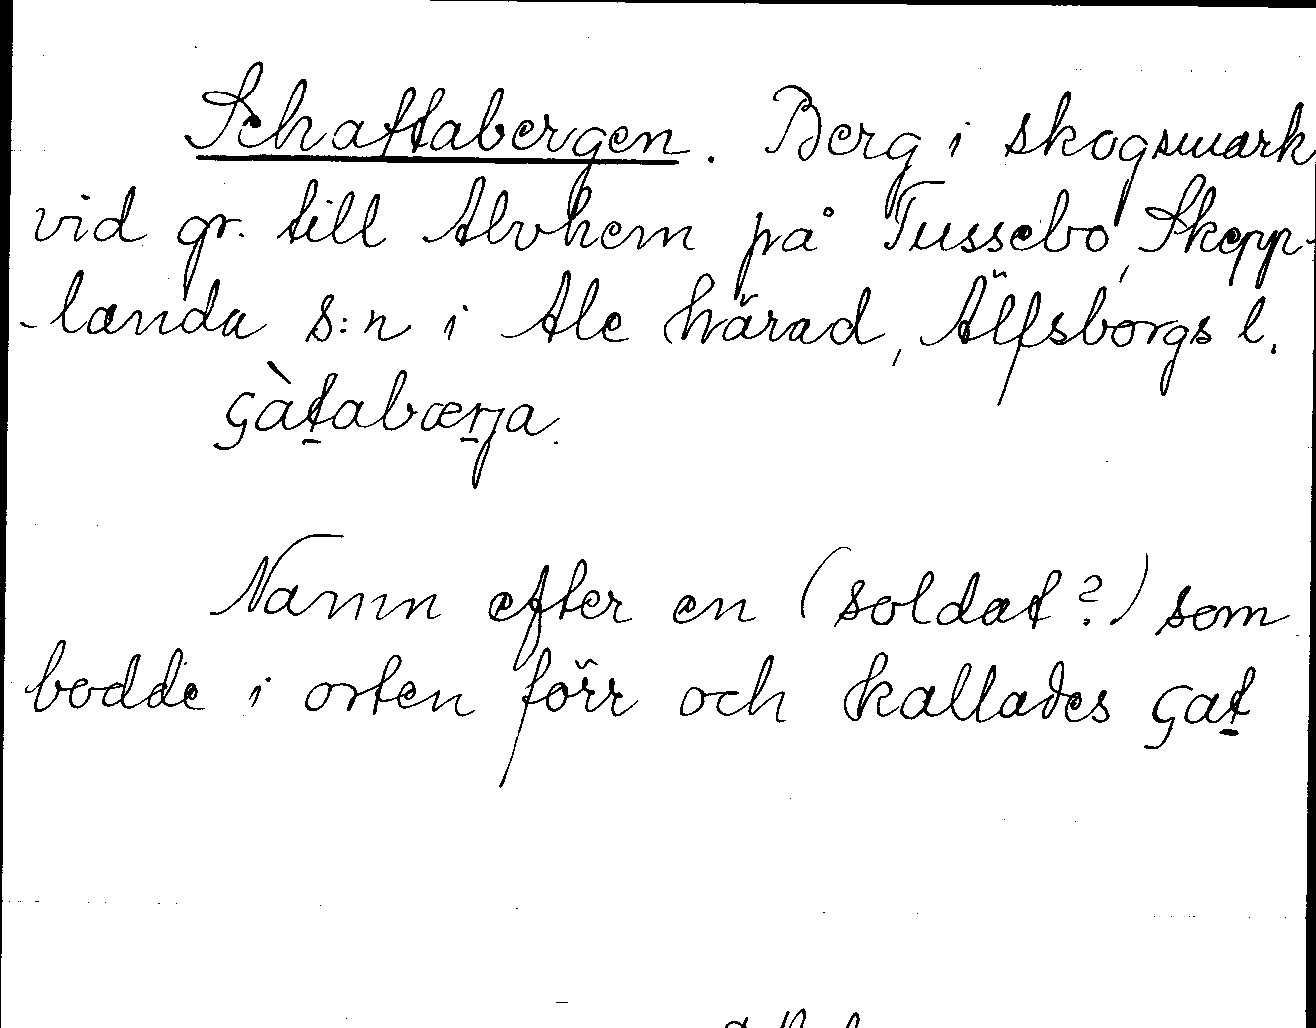 Schattabergen. Berg i skogsmark
vid gr. till Alvhem på Tussebo, Skepp-
-landa s:n i Ale härad, Älfsborgs l.
çàt̠abær̠ja.
Namn efter en (soldat?) som
bodde i orten förr och kallades çat̠